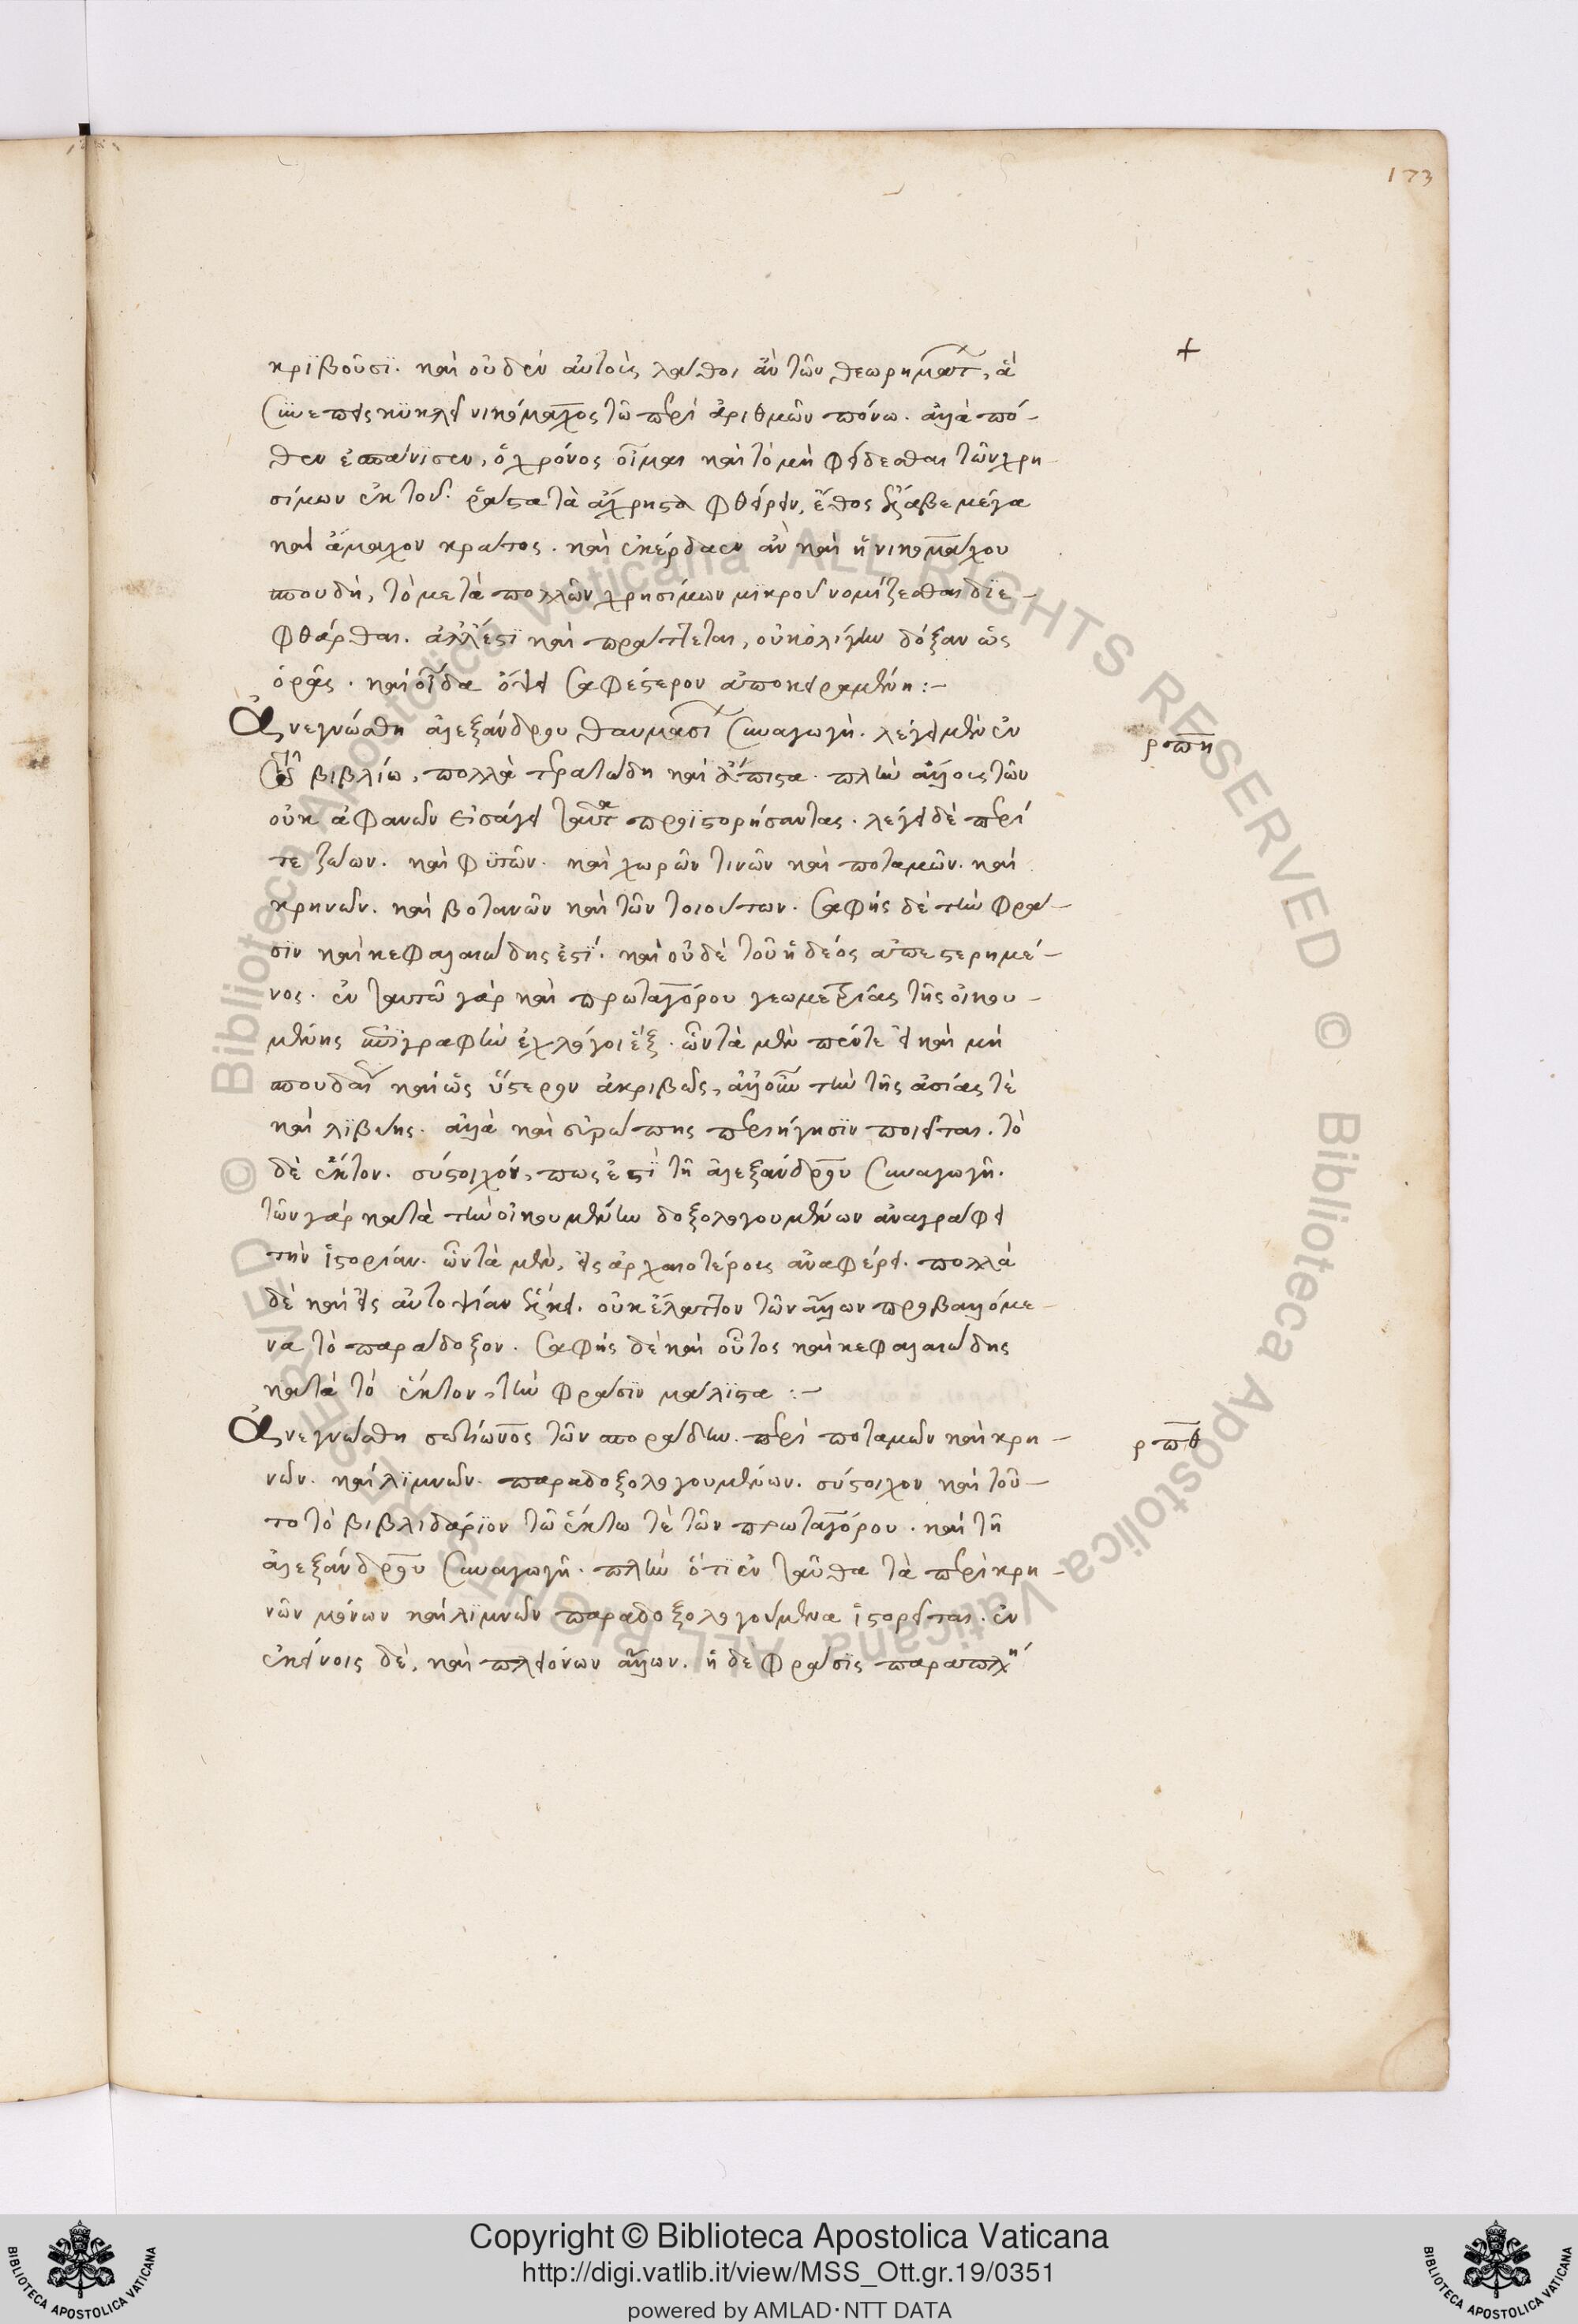 173
κριβοῦσϊ. καὶ οὐδὲν αὐτοὺς λάθοι ἂν τῶν θεωρημάτ, ἃ
συνεπεσκύκλει νικόμαχος τῶ περὶ ἀριθμῶν πόνω. ἀλλὰ πό-
θεν ἐσπάνϊσεν, ὁ χρόνος οἶμαι καὶ τὸ μὴ φείδεσθαι τῶν χρη-
σίμων ἐκ τοῦ ῥᾶστα τὰ ἄχρηστα φθείρειν, ἔθος ἔλαβε μέγα
καὶ ἄμαχον κράτος. καὶ ἐκέρδαεν ἂν καὶ ἡ νικομάχου
σπουδὴ, τὸ μετὰ πολλῶν χρησίμων μϊκροῦ νομίζεσθαι δϊε-
φθάρθαι. ἀλλ' ἔστϊ καὶ πράττεται, οὐκ ὀλίγην δόξαν ὡς
ὁρᾷς. καὶ οἶδα ὄψει σαφέστερον ἀποκειραμένη:-
Ἀνεγνώσθη ἀλεξάνδρου θαυμασί συναγωγὴ. λέγει μὲν ἐν
τῶ βιβλίω, πολλὰ τερατώδη καὶ ἄπιστα. πλὴν ἄλλους τῶν
οὐκ ἀφανῶν εἰσάγει ταῦτ προϊστορήσαντας. λέγει δὲ περί
τε ζώων. καὶ φϋτῶν. καὶ χωρῶν τινῶν καὶ ποταμῶν. καὶ
κρηνῶν. καὶ βοτανῶν καὶ τῶν τοιούτων. σαφὴς δὲ τὴν φρά-
σϊν καὶ κεφαλαιώδης ἐστΐ. καὶ οὐδὲ τοῦ ἡδέος ἀπεστερημέ-
νος. ἐν ταυτῶ γὰρ καὶ πρωταγόρου γεωμετρίας τῆς οἰκου-
μένης ἐπϊγραφὴν ἐχ λόγοι ἕξ. ὧν τὰ μὲν πέντε εἰ καὶ μὴ
σπουδαῖ καὶ ὡς ὕστερον ἀκριβῶς, ἀλλ' οὖν τὴν τῆς ἀσίας τὲ
καὶ λϊβύης. ἀλλὰ καὶ εὐρώπης περιήγησϊν ποιεῖται. τὸ
δὲ ἕκτον. σύστοιχόν, πως ἐστϊ τῆ ἀλεξάνδρου συναγωγῆ.
τῶν γὰρ κατὰ τὴν οἰκουμένην δοξολογουμένων ἀναγράφει
τὴν ἱστορίαν. ὧν τὰ μὲν, εἰς ἀρχαιοτέρους ἀναφέρει. πολλὰ
δὲ καὶ εἰς αὐτοψίαν ἕλκει. οὐκ ἔλαττον τῶν ἄλλων προβαλλόμε-
να τὸ παράδοξον. σαφὴς δὲ καὶ οὗτος καὶ κεφαλαιώδης
κατὰ τὸ ἕκτον, τὴν φράσϊν μάλϊστα:-
Ἀνεγνώσθη σωτίωνος τῶν σποράδην. περὶ ποταμῶν καὶ κρη-
νῶν. καὶ λϊμνῶν. παραδοξολογουμένων. σύστοιχον καὶ τοῦ-
το τὸ βιβλιδάρϊον τῶ ἕκτω τὲ τῶν πρωταγόρου. καὶ τῆ
ἀλεξάνδρου συναγωγῆ. πλὴν ὅτϊ ἐνταῦθα τὰ περὶ κρη-
νῶν μόνων καὶ λϊμνῶν παραδοξολογούμενα ἱστορεῖται. ἐν
ἐκείνοις δὲ, καὶ πλειόνων ἄλλων. ἡ δὲ φράσϊς παραπλή
+
ρπη
ρπθ
Copyright © Biblioteca Apostolica Vaticana
http://digi.vatlib.it/view/MSS_Ott.gr.19/0351
powered by AMLAD·NTT DATA
BIBLIOTECA APOSTOLICA VATICANA
BIBLIOTECA APOSTOLICA VATICANA
© Biblioteca Apostolica Vaticana ALL RIGHTS RESERVED
© Biblioteca Apostolica Vaticana ALL RIGHTS RESERVED